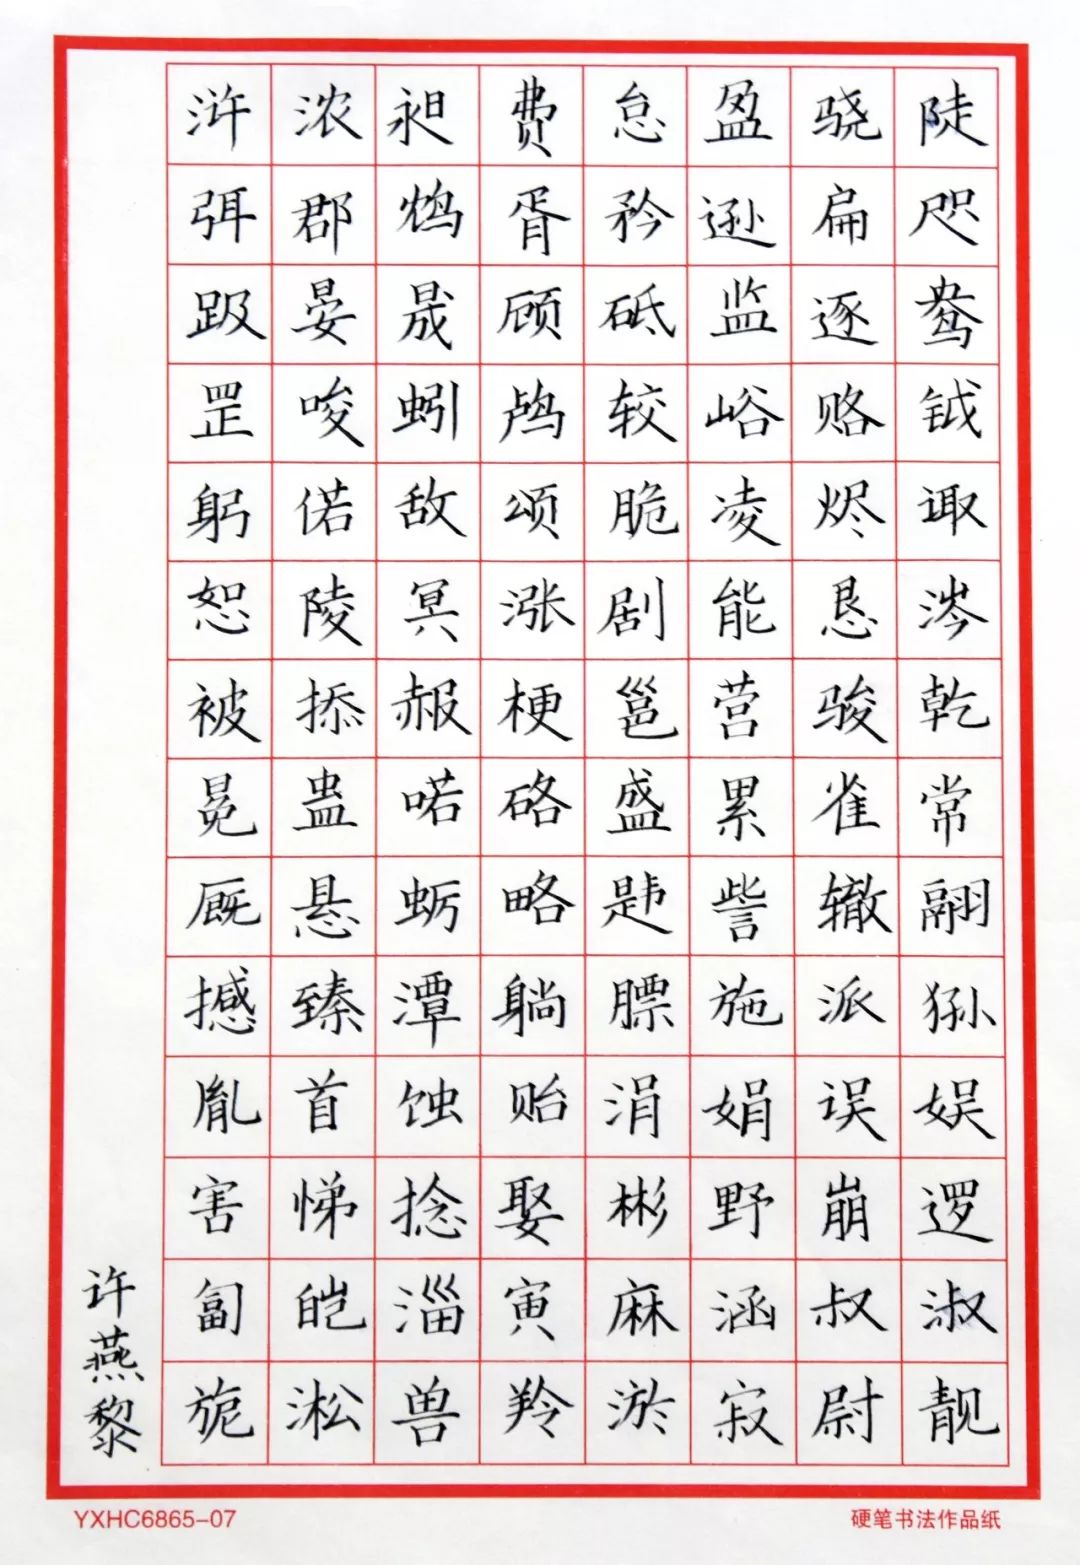 陡咫鸯钺诹涔乾常翮狲娱逻淑靓
骁扁逐赂烬恳骏雀辙派误崩叔尉
盈逊监峪凌能营累訾施娟野涵寂
怠矜砥较脆剧邕盛韪膘涓彬麻淤
费胥顾鸪颂涨梗硌略躺贻娶寅羚
昶鸩晟蚓敌冥赧喏蛎潭蚀捻淄兽
浓郡晏唆偌陵掭蛊悬臻首悌皑淞
浒弭趿罡躬恕被冕厩撼胤害匐旎
许燕黎
YXHC6865-07
硬笔书法作品纸